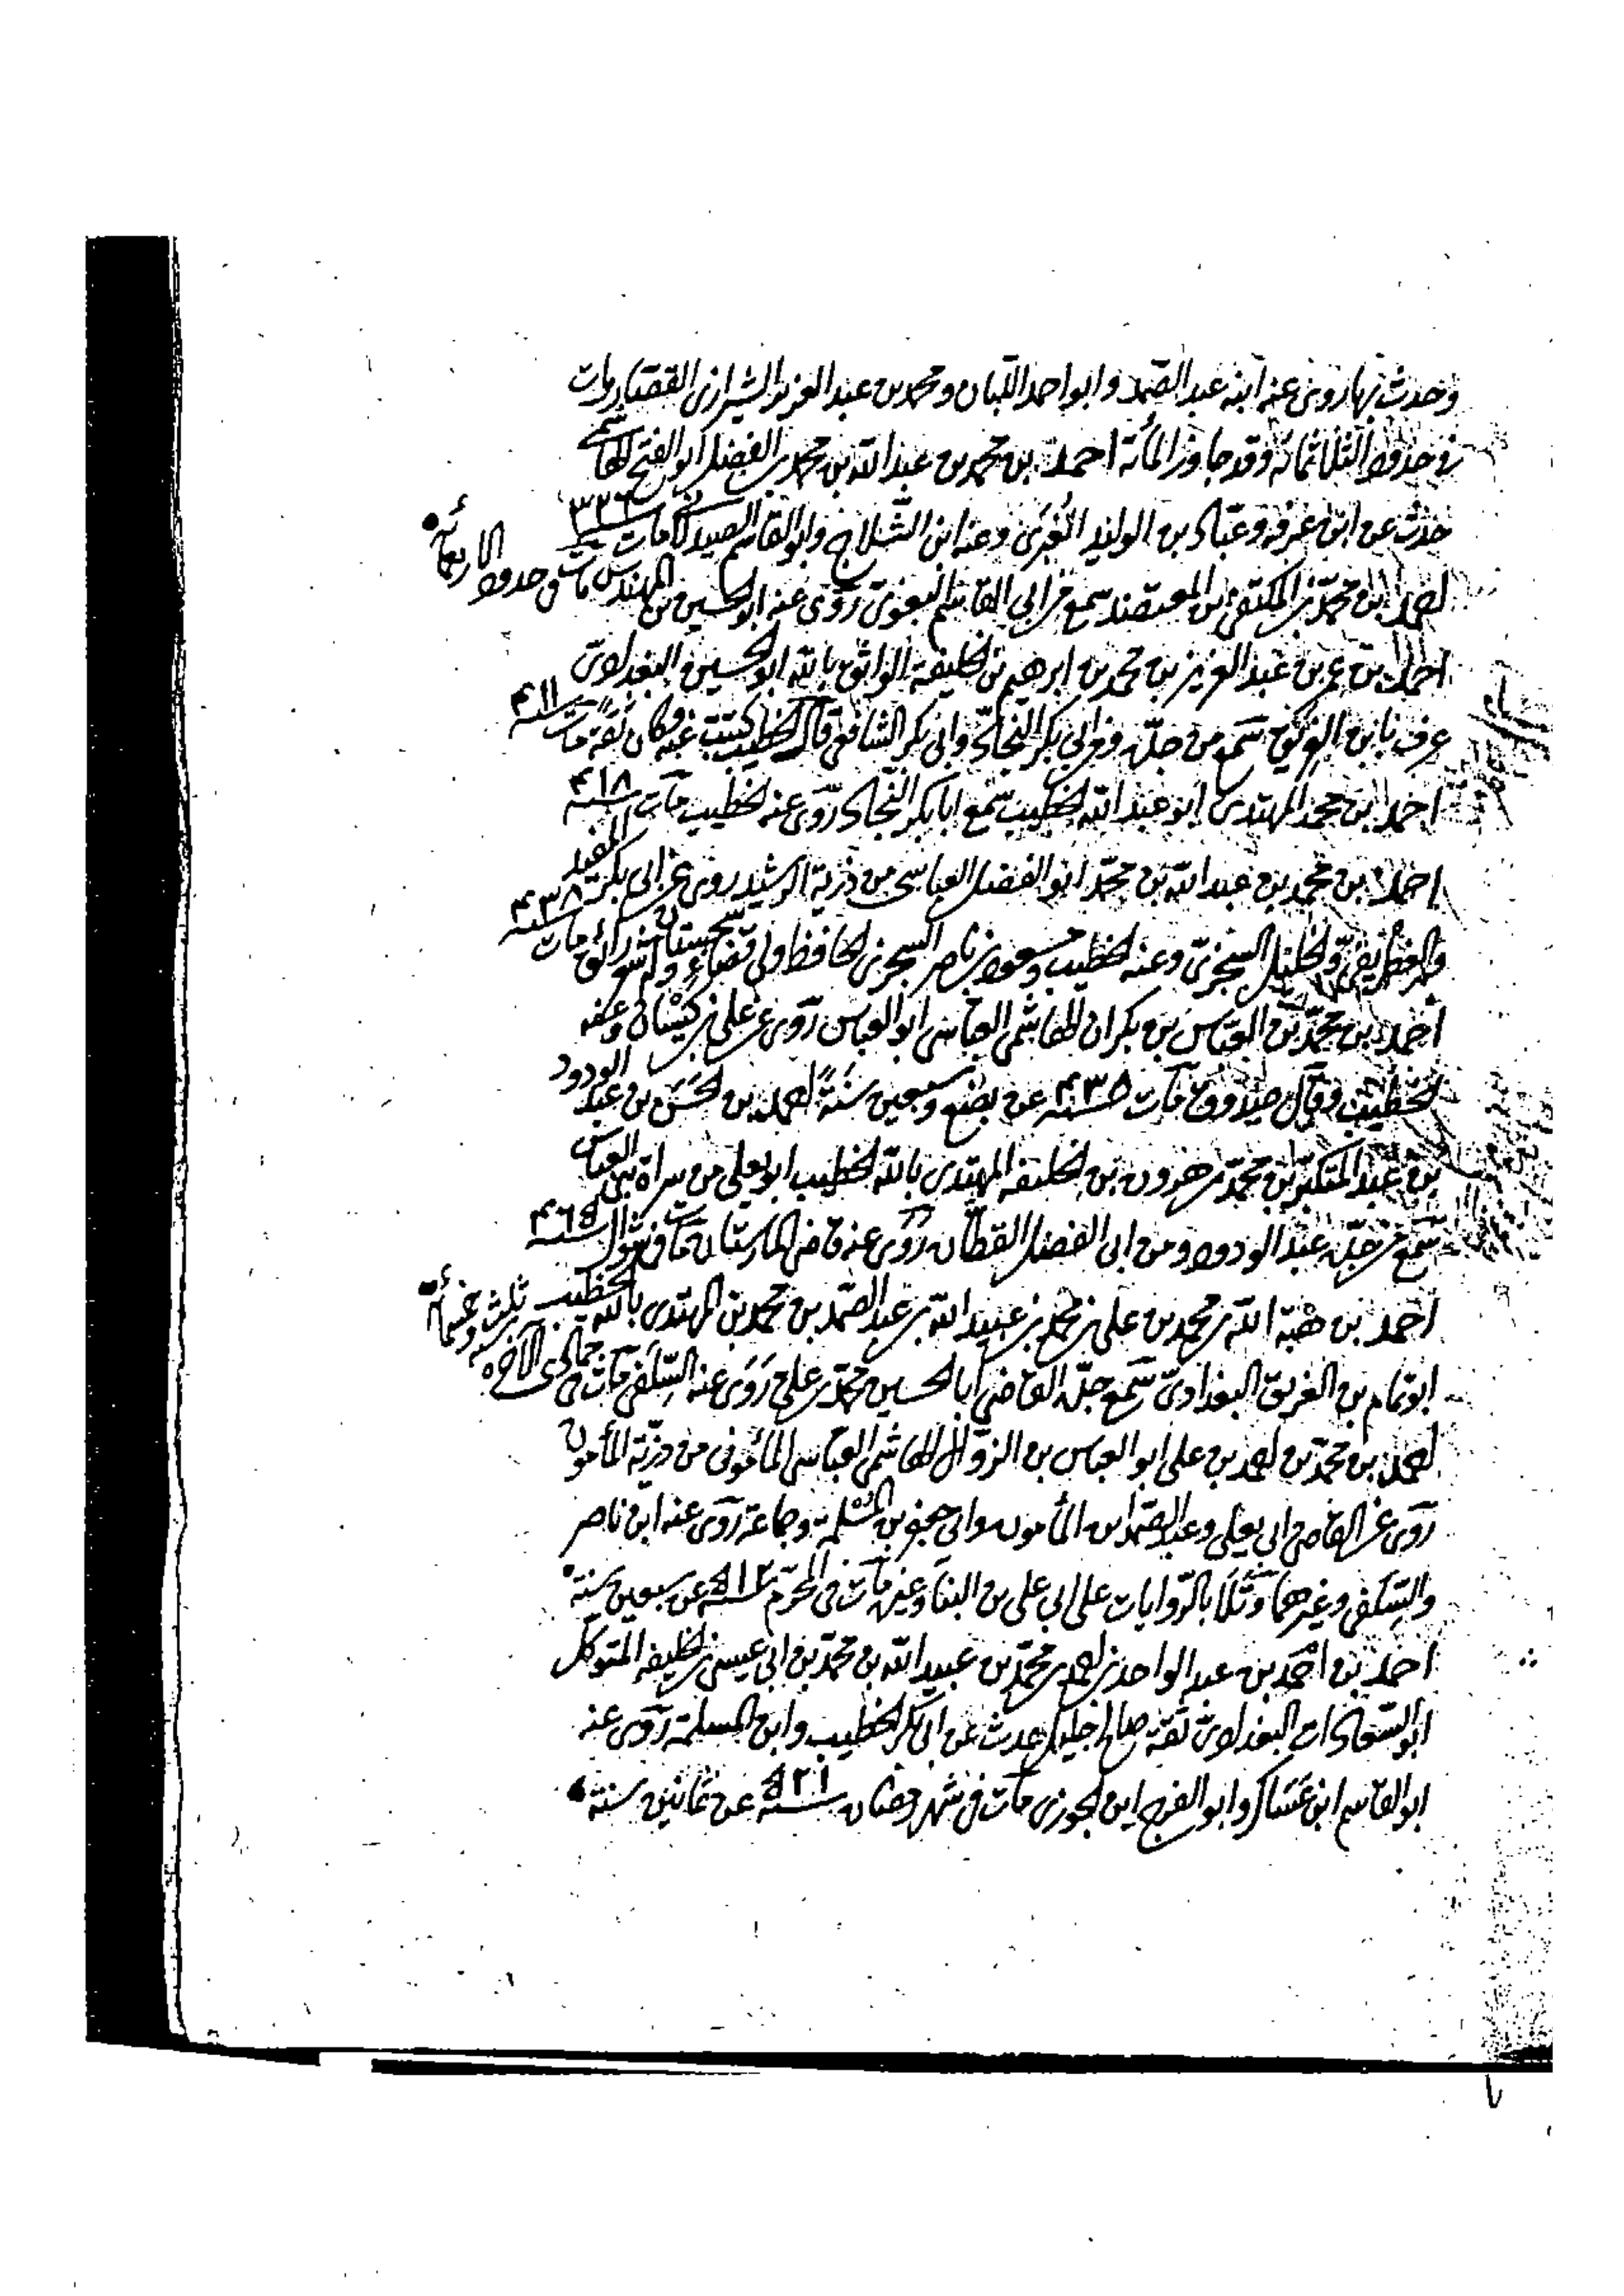 وحدث بها روى عنه ابنه عبد الصمد وابو احمد اللبان ومحمد بن عبد العزيز الشيرازى القصار مات
فى حدود الثلاثمائة وقد جاوز المائة احمد بن محمد بن عبد الله بن محمد بن الفضل ابو الفتح الهاشمى
حدث عن ابن عرفه وعباد بن الوليد الغبرى وعنه ابن الثلاج وابو القاسم الصيدلانى مات سنة ٣٣٢
احمد بن محمد بن المكتفى بن المعتضد سمع من ابى القاسم البغوى روى عنه ابو الحسين بن المهتدى مات فى حدود الاربعمائة
احمد بن عمر بن عبد العزيز بن محمد بن ابرهيم بن الخليفة الواثق بالله ابو الحسين البغدادى
عرف بابن سمع من جده وعن ابى بكر النجاد وابى بكر الشافعى قال الخطيب كتبت عنه وكان ثقة مات سنة ٤١١
احمد بن محمد المهتدى ابو عبد الله الخطيب سمع ابا بكر النجاد روى عنه الخطيب مات سنة ٤١٨
احمد بن محمد بن عبد الله بن محمد ابو الفضل العباسى من ذرية الرشيد روى عن ابى بكر المفيد
والغطريفى والخليل السجزى وعنه الخطيب ومسعود بن ناصر السجزى الحافظ ولى قضاء سجستان وله شعر رائق مات سنة ٤٣٨
احمد بن محمد بن العباس بن بكران الهاشمى العباسى ابو العباس روى عن على بن كيسان وعنه
الخطيب وقال صدوق مات سنة ٤٣٥ عن بضع وسبعين سنة احمد بن الحسن بن عبد الودود
بن عبد المتكبر بن محمد بن هرون بن الخليفه المهتدى بالله الخطيب ابو يعلى من سراة بنى العباس
سمع من جده عبد الودود ومن ابى الفضل القطان روى عنه قاضى المارستان مات فى شوال سنة ٤٦٥
احمد بن هبة الله بن محمد بن على بن محمد بن عبيد الله بن عبد الصمد بن محمد بن المهتدى بالله الخطيب
ابو تمام بن الغريق البغدادى سمع جده القاضى ابا الحسين محمد بن على روى عنه السلفى مات فى جمادى الآخره سنة ثلث وخمسمائة
احمد بن محمد بن احمد بن على ابو العباس بن الزوال الهاشمى العباسى المأمونى من ذرية المأمون
روى عن القاضى ابى يعلى وعبد الصمد ابن المأمون وابى جعفر بن المسلمة وجماعة روى عنه ابن ناصر
والسلفى وغيرهما وتلا بالروايات على ابى على بن البنا وغيره مات فى المحرم سنة ٥١٢ عن سبعين سنة
احمد بن احمد بن عبد الواحد بن احمد بن محمد بن عبيد الله بن محمد بن ابى عيسى بن الخليفه المتوكل
ابو السعادات البغدادى ثقة صالح جليل حدث عن ابى بكر الخطيب وابن المسلمة روى عنه
ابو القاسم ابن عساكر وابو الفرج ابن الجوزى مات فى شهر رمضان سنة ٥٢١ عن ثمانين سنة